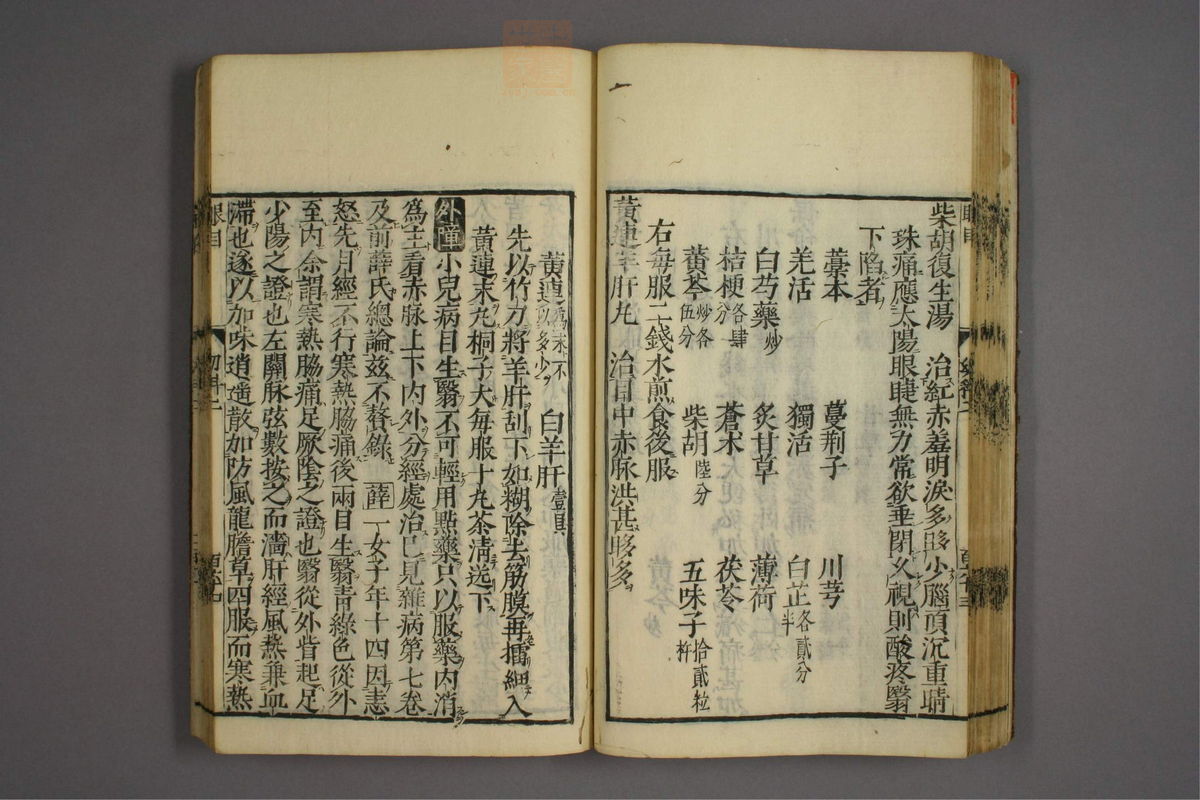 柴胡復生湯　治紅赤羞明淚多眵少腦頂沉重睛
珠痛應太陽眼睫無力常欲垂閉久視則酸疼翳
下陷者
藁本　蔓荆子　川芎
羌活　獨活　白芷各貳分半
白芍藥炒　炙甘草　薄荷
桔梗各肆分　蒼术　茯苓
黄芩炒各伍分　柴胡陸分　五味子拾貳粒杵
右每服二錢水煎食後服
黄連羊肝丸　治目中赤脉洪甚眵多
黄連爲末不以多少　白羊肝壹具
先以竹刀將羊肝刮下如糊除去筋膜再擂細入
黄連末丸桐子大每服十丸茶清送下
外障小兒病目生翳不可輕用點藥只以服藥内消
爲主看赤脉上下内外分經處治已見雜病第七卷
及前薛氏總論兹不贅錄　薛一女子年十四因恚
怒先月經不行寒熱脇痛後兩目生翳青綠色從外
至内余謂寒熱脇痛足厥陰之證也翳從外眥起足
少陽之證也左關脉弦數按之而濇肝經風熱兼血
滯也遂以加味逍遥散加防風龍膽草四服而寒熱
眼目